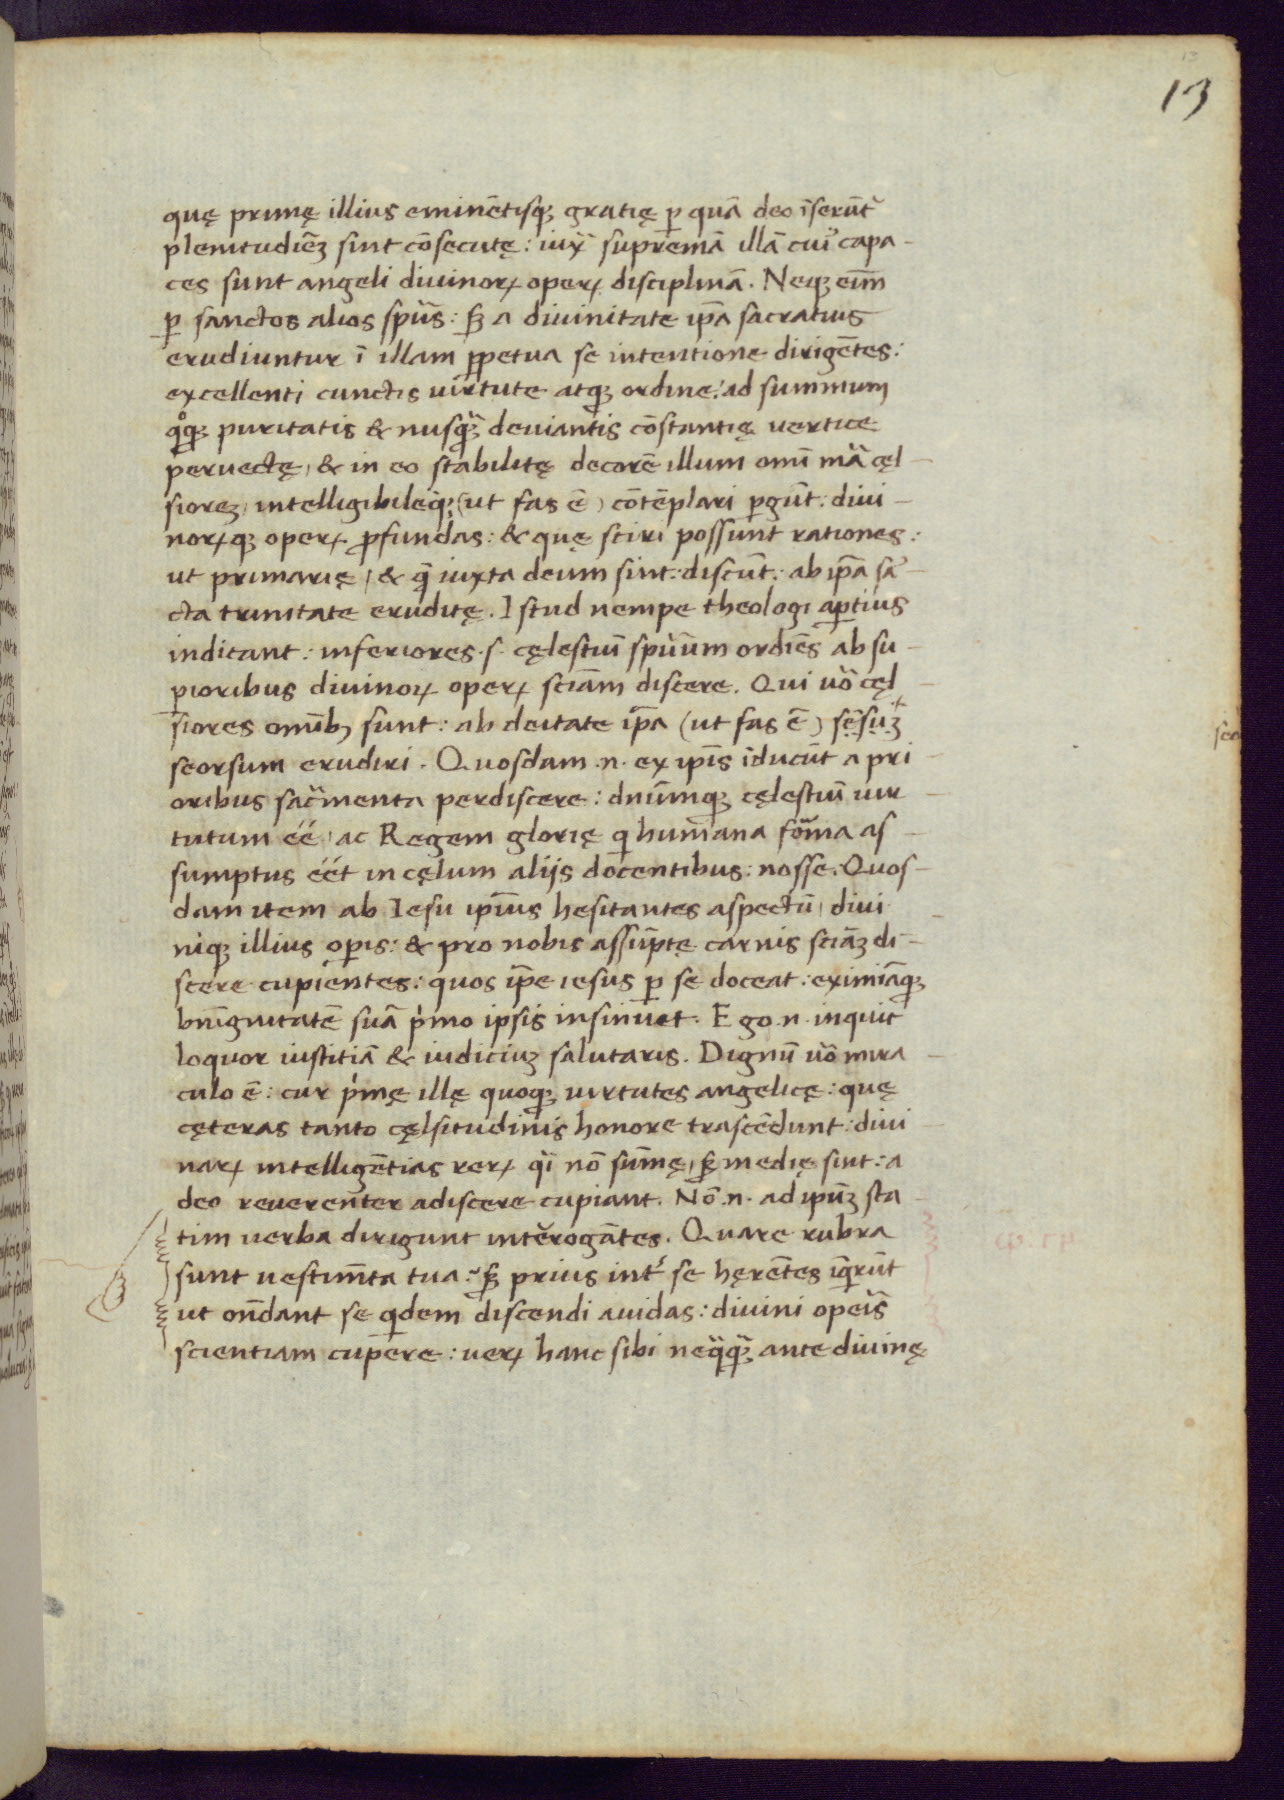 13
quę primę illius eminētisqꝫ gratię ꝑ quā deo īserūt᷑
plenitudiēꝫ sint cōsecutę: iux̄ supremā illā cui᷒ capa-
ces sunt angeli diuinoꝝ operꝝ disciplinā. Neqꝫ eīm
ꝑ sanctos alios spūs: sꝫ a diuinitate ip̄a sacratius
erudiuntur ī illam ꝑpetua se intentione dirigētes:
excellenti cunctis uirtute atqꝫ ordine: ad summum
qͦqꝫ puritatis & nusq̄ꝫ deuiantis cōstantię uertice
peruectę, & in eo stabilitę decorē illum omū mā cęl-
siorеꝫ, intelligibilēqꝫ (ut fas ē) cōtēplari ꝑgūt: diui-
norꝝqꝫ operꝝ ꝓfundas: & quę sciri possunt rationes:
ut primarię, & q̄ iuxta deum sint: discūt: ab ip̄a sā-
cta trinitate eruditę. Istud nempe theologi aꝑtius
inditant: inferiores .s. cęlestiū spūum ordiēs ab su-
ꝑioribus diuinorꝝ operꝝ sciām discere. Qui uō cęl-
siores omībꝫ sunt: ab deitate ip̄a (ut fas ē) sēsuꝫ
seorsum erudiri. Quosdam .n. ex ip̄is īducūt a pri-
oribus sac̄menta perdiscere: dnūmqꝫ cęlestiū uir-
tutum éé, ac Regem glorię q humana for̄ma as-
sumptus éét in cęlum alijs docentibus: nosse. Quos-
dam item ab Iesu ipīus hesitantes aspectū, diui-
niqꝫ illius oꝑis: & pro nobis assūptę carnis sciāꝫ di-
scere cupientes: quos ip̄e iesus ꝑ se doceat: eximiāqꝫ
bn̄ignitatē suā p̍mo ipsis insinuet. Ego .n. inquit
loquor iustitiā & iudiciuꝫ salutaris. Dignū uō mira-
culo ē: cur p̍mę illę quoqꝫ uirtutes angelicę: quę
cęteras tanto cęlsitudinis honore trascēdunt: diui-
narꝝ intelligētias rerꝝ q̄i nō sum̄ę, sꝫ medię sint: a
deo reuerenter adiscere cupiant. Nō .n. ad ipūꝫ sta-
tim uerba dirigunt intěrogātes. Quare rubra
sunt uestimīta tua: sꝫ prius int᷑ se hęrētes iq̄rūt
ut ondant se qdem discendi auidas: diuini opeīs
scientiam cupere: uerꝝ hanc sibi neq̄q̄ꝫ ante diuinę